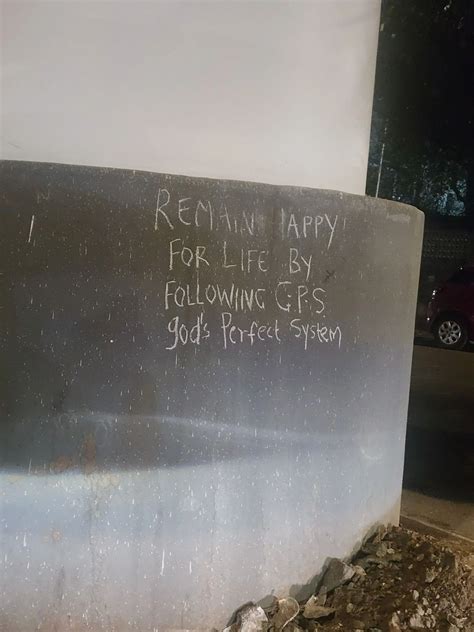 REMAIN HAPPY
FOR LIFE BY
FOLLOWING G.P.S
god's Perfect System